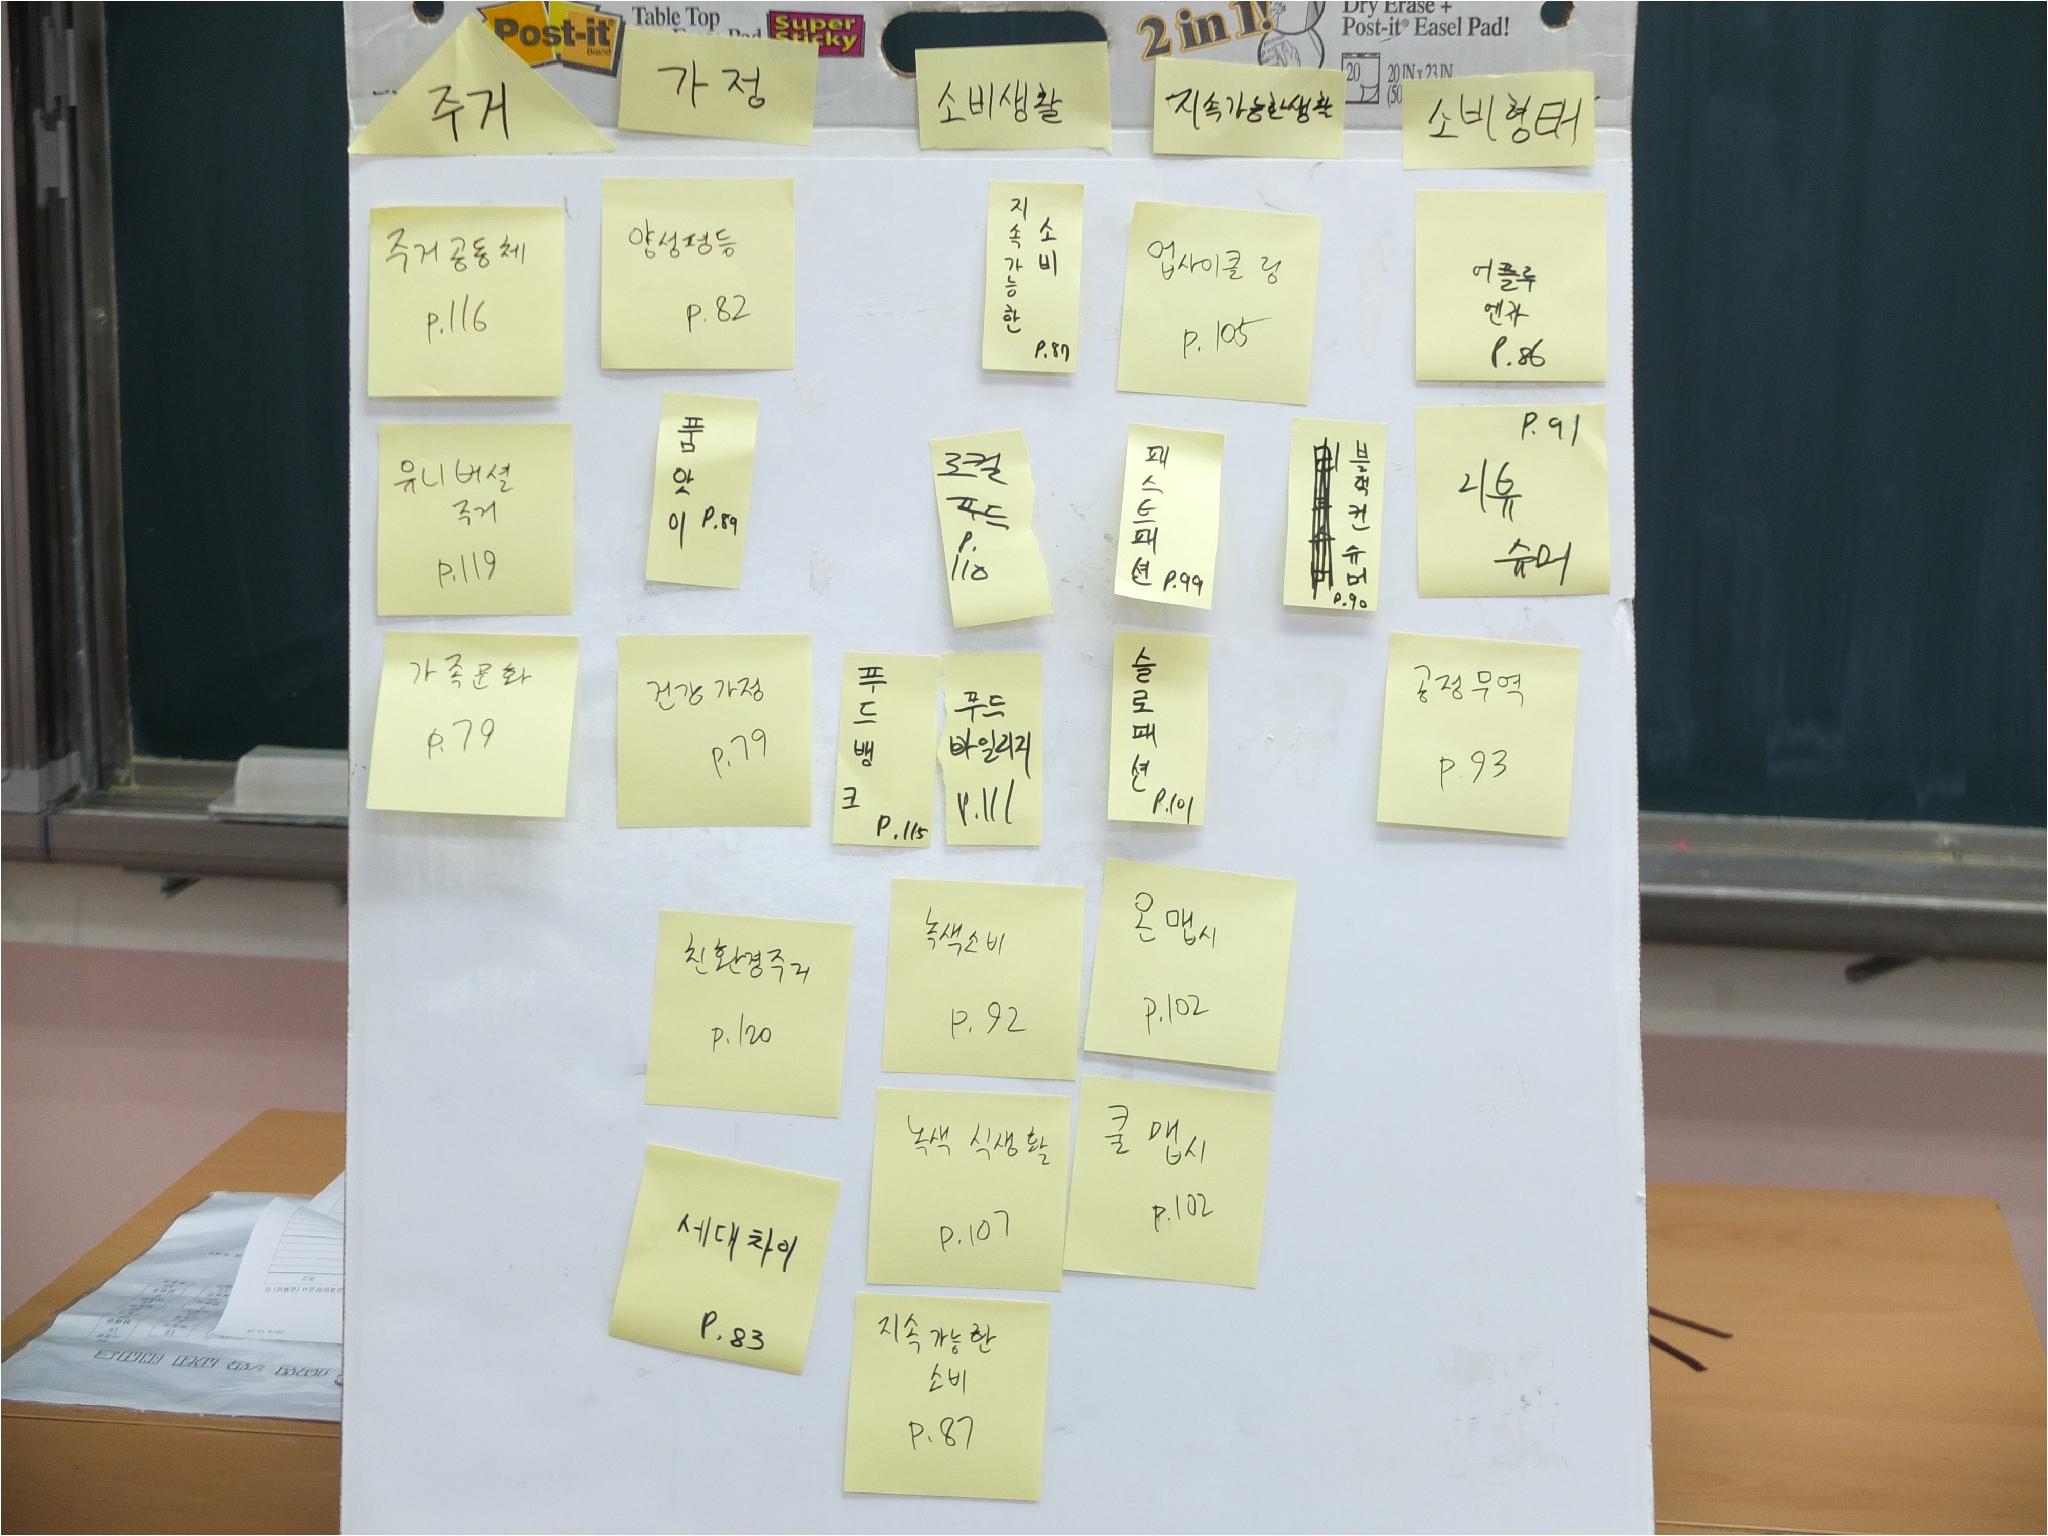 Post-it
Brand
Table Top
Super
Sticky
2 in 1!
Dry Erase +
Post-it® Easel Pad!
20
20 IN x 23 IN
주거
가정
소비생활
지속가능한생활
소비형태
주거공동체
p.116
양성평등
p.82
지속가능한
소비
P.87
업사이클링
p.105
어플루
엔자
P.86
유니버셜
주거
p.119
품앗이
P.89
로컬
푸드
P.
110
패스트패션
P.99
블랙컨슈머
P.90
P.91
리뷰
슈머
가족문화
p.79
건강가정
p.79
푸드뱅크
P.115
푸드
마일리지
p.111
슬로패션
P.101
공정무역
p.93
친환경주거
p.120
녹색소비
p.92
온맵시
p.102
세대차이
P.83
녹색 식생활
p.107
쿨맵시
p.102
지속가능한
소비
p.87